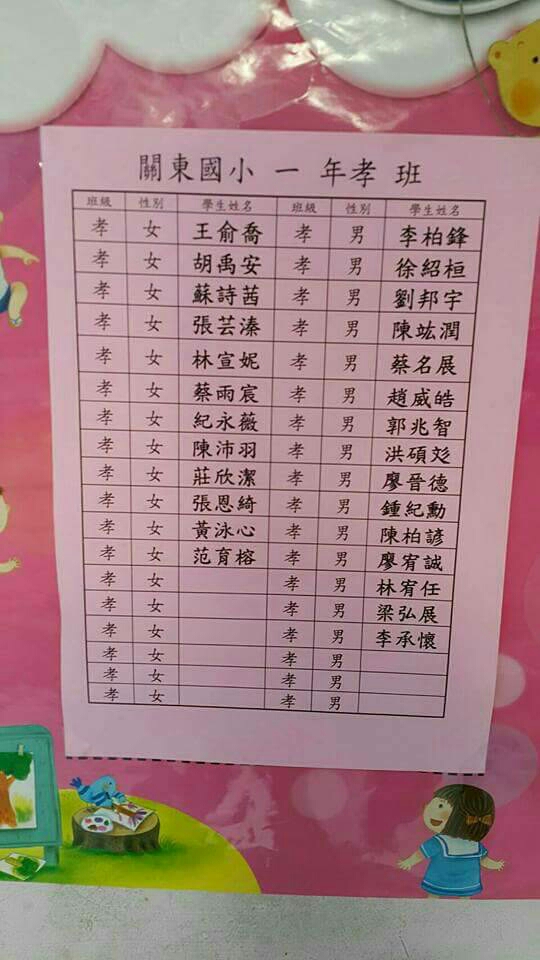 關東國小 一 年孝 班
班級 性別 學生姓名 班級 性別 學生姓名
孝 女 王俞喬 孝 男 李柏鋒
孝 女 胡禹安 孝 男 徐紹桓
孝 女 蘇詩茜 孝 男 劉邦宇
孝 女 張芸溱 孝 男 陳竑潤
孝 女 林宣妮 孝 男 蔡名展
孝 女 蔡雨宸 孝 男 趙威皓
孝 女 紀永薇 孝 男 郭兆智
孝 女 陳沛羽 孝 男 洪碩彣
孝 女 莊欣潔 孝 男 廖晉德
孝 女 張恩綺 孝 男 鍾紀勳
孝 女 黃泳心 孝 男 陳柏諺
孝 女 范育榕 孝 男 廖宥誠
孝 女 孝 男 林宥任
孝 女 孝 男 梁弘展
孝 女 孝 男 李承懷
孝 女 孝 男
孝 女 孝 男